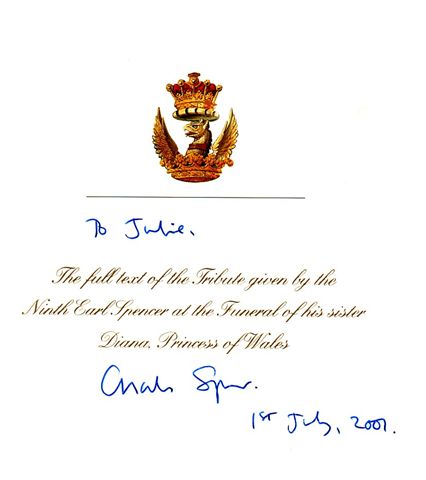 To Julie.
The full text of the Tribute given by the
Ninth Earl Spencer at the Funeral of his sister
Diana, Princess of Wales
Charles Spencer.
1st July, 2001.